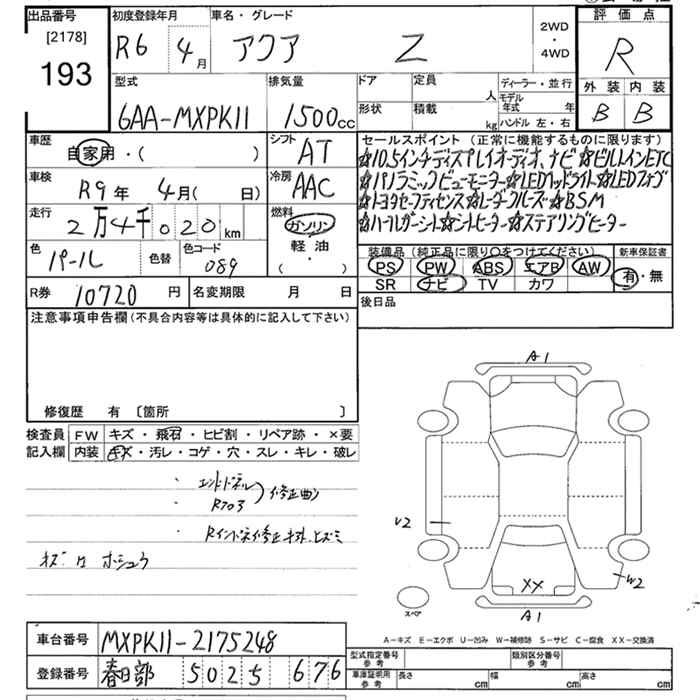 出品番号 初度登録年月 車名・グレード 2WD・4WD 評価点
[2178]
193 R6 4月 アクア Z R
型式 排気量 ドア 定員 人 ディーラー・並行 外装 内装
6AA-MXPK11 1500cc 形状 積載 kg モデル年式 年 ハンドル 左・右 B B
車歴 自家用・( ) シフト AT セールスポイント (正常に機能するものに限ります)
☆10.5インチディスプレイオーディオ、ナビ☆ビルトインETC
車検 R9年 4月( 日) 冷房 AAC ☆パノラミックビューモニター☆LEDヘッドライト☆LEDフォグ
☆トヨタセーフティセンス☆レーダークルーズ☆BSM
走行 2万4千020km 燃料 ガソリン 軽油 ( ・ ) ☆ハーフレザーシート☆シートヒーター☆ステアリングヒーター
色 パール 色替 色コード 089 装備品 (純正品に限り○をつけてください) 新車保証書
PS PW ABS エアB AW 有・無
SR ナビ TV カワ
R券 10720円 名変期限 月 日 後日品
注意事項申告欄 (不具合内容等は具体的に記入して下さい)
修復歴 有 〔箇所 〕
検査員 FW キズ・飛石・ヒビ割・リペア跡・×要
記入欄 内装 キズ・汚レ・コゲ・穴・スレ・キレ・破レ
・エンドパネル
Rフロア 修正曲
・Rインパネ修正キズ、ヒズミ
キズ
A1
V2
W2
XX
A1
スペア
A−キズ E−エクボ U−凹み W−補修跡 S−サビ C−腐食 XX−交換済
車台番号 MXPK11-2175248
型式指定番号 参考 類別区分番号 参考
登録番号 春日部 5025 676
車庫証明用 参考 長さ cm 幅 cm 高さ cm